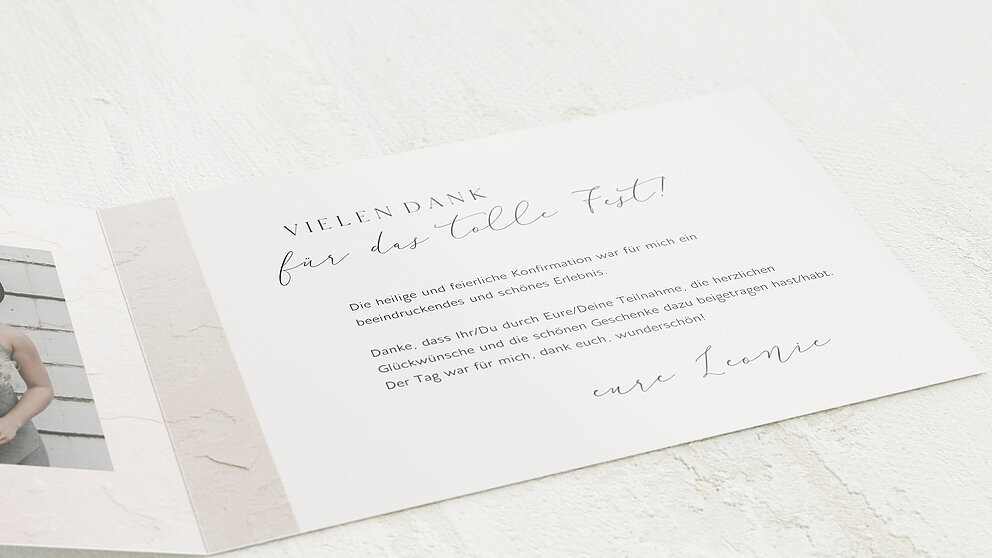 VIELEN DANK
für das tolle Fest!
Die heilige und feierliche Konfirmation war für mich ein
beeindruckendes und schönes Erlebnis.
Danke, dass Ihr/Du durch Eure/Deine Teilnahme, die herzlichen
Glückwünsche und die schönen Geschenke dazu beigetragen hast/habt.
Der Tag war für mich, dank euch, wunderschön!
eure Leonie